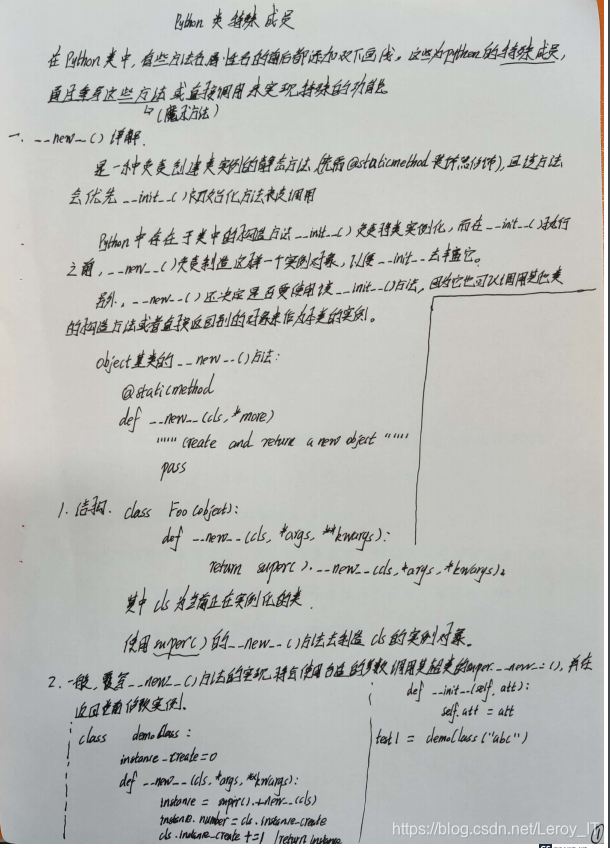 Python 类特殊成员
在Python类中,有些方法名属性名的前后都添加双下画线。这些为python的特殊成员,
通过重写这些方法或直接调用来实现特殊的功能
↳(魔术方法)
一. __new__() 详解.
是一种负责创建类实例的静态方法 (无需@staticmethod 装饰器修饰),且该方法
会优先 __init__() 初始化方法来被调用
Python 中存在于类中的构造方法 __init__() 负责将类实例化,而在 __init__() 执行
之前,__new__() 负责制造这样一个实例对象,以便 __init__ 去丰盈它。
另外,__new__() 还决定是否要使用该 __init__() 方法,因为它也可以调用其他类
的构造方法或者直接返回别的对象来作为本类的实例。
Object 基类的 __new__() 方法:
@staticmethod
def __new__(cls, *more)
""" Create and return a new object """
pass
1. 结构. class Foo(object):
def __new__(cls, *args, **kwargs):
return super().__new__(cls, *args, *kwargs).
其中 cls 为当前正在实例化的类.
使用 super() 的 __new__() 方法去制造 cls 的实例对象。
2. 一般,覆写 __new__() 方法的实现,将会使用合适的参数调用其超类的super.__new__(), 并在
返回之前修改实例.
class demoClass:
instance_create=0
def __new__(cls, *args, **kwargs):
instance = super().__new__(cls)
instance.number = cls.instance_create
cls.instance_create += 1 | return instance
def __init__(self, att):
self.att = att
test1 = demoClass("abc")
https://blog.csdn.net/Leroy_IT
①